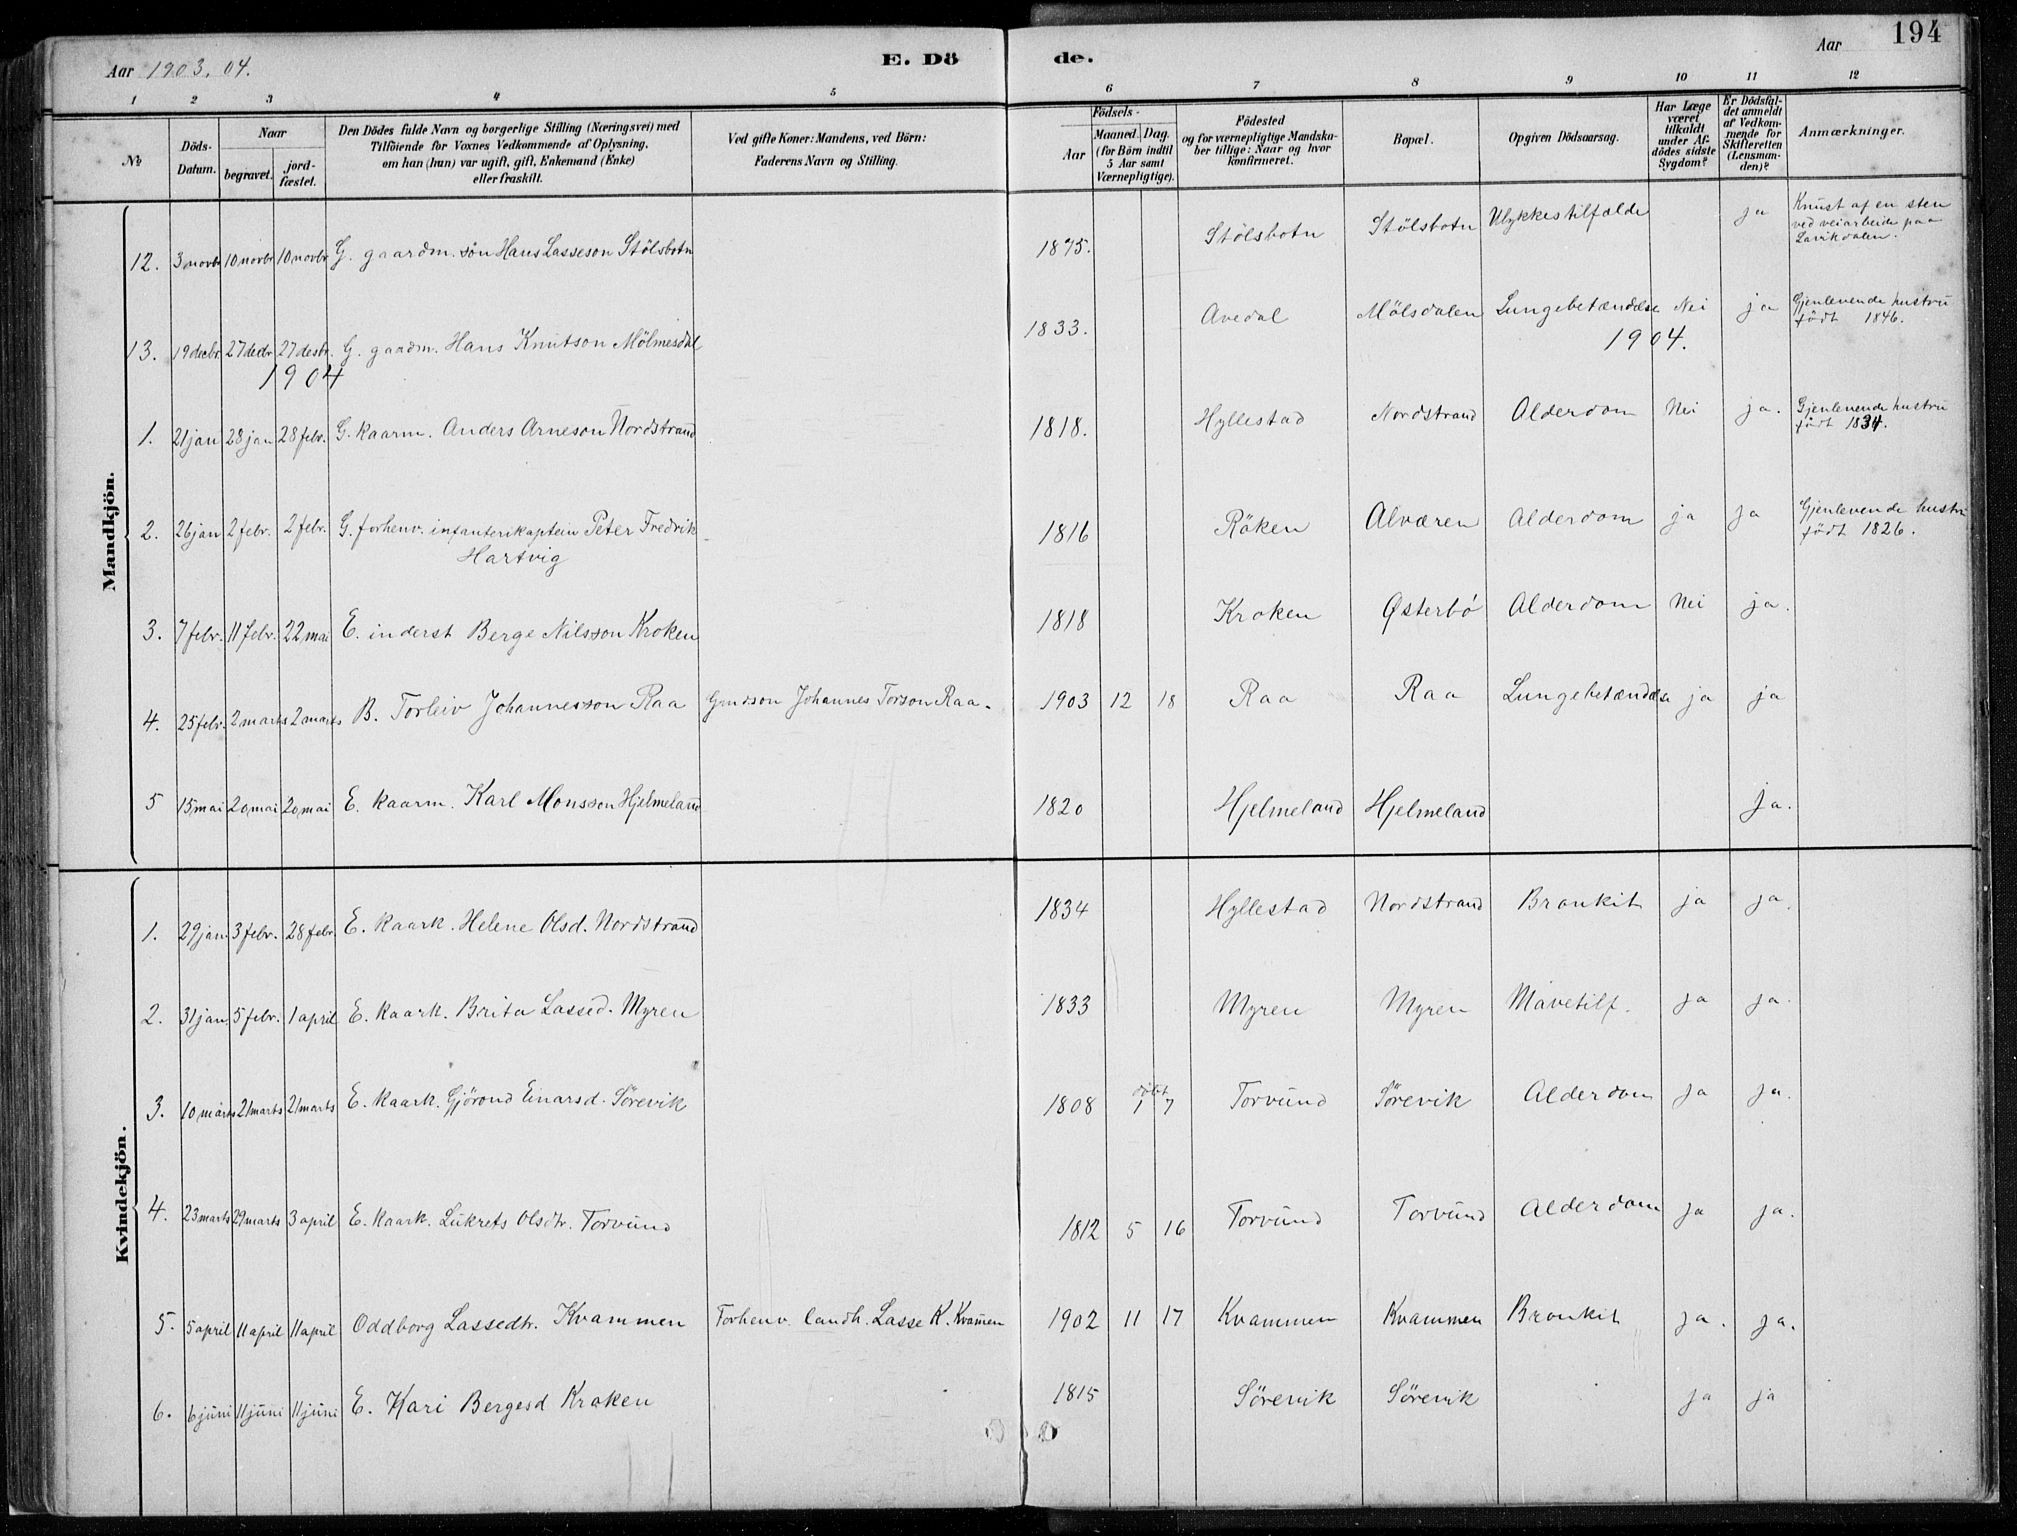 Aar 1903.04.
E. Dö
de.
Aar
194
1 2 3 4 5 6 7 8 9 10 11 12
No
Döds-Datum.
Naar
begravet.
jordfæstet.
Den Dödes fulde Navn og borgerlige Stilling (Næringsvei) med
Tilföiende for Voxnes Vedkommende af Oplysning,
om han (hun) var ugift, gift, Enkemand (Enke)
eller fraskilt.
Ved gifte Koner: Mandens, ved Börn:
Faderens Navn og Stilling.
Födsels-
Aar
Maaned. Dag.
(for Börn indtil
5 Aar samt
Værnepligtige).
Födested
og for værnepligtige Mandska-
ber tillige: Naar og hvor
konfirmeret.
Bopæl.
Opgiven Dödsaarsag.
Har Læge
været
tilkaldt
under Af-
dödes sidste
Sygdom?
Er Dödsfal-
det anmeldt
af Vedkom-
mende for
Skifteretten
(Lensman-
den)?
Anmærkninger.
Mandkjön.
12. 3 novbr 10 novbr 10 novbr G. gaardm. sön Hans Lasseson Stölsbotn 1875. Stölsbotn Stölsbotn Ulykkestilfælde ja Knust af en sten
ved veiarbeide paa
Lavikdalen.
13. 19 decbr 27 decbr 27 desbr. G. gaardm. Hans Knutson Mölmesdal 1833. Avedal Mölsdalen Lungebetændelse Nei ja Gjenlevende hustru
födt 1846.
1904 1904.
1. 21 jan 28 jan 28 febr. G. kaarm. Anders Arneson Nordstrand 1818. Hyllestad Nordstrand Alderdom Nei ja. Gjenlevende hustru
födt 1834.
2. 26 jan 2 febr. 2 febr. G. forhenv. infanterikaptein Peter Fredrik
Hartvig 1816 Röken Alværen Alderdom ja ja Gjenlevende hustr
födt 1826.
3. 7 febr. 11 febr. 22 mai E. inderst Berge Nilsson Kroken 1818 Kroken Østerbö Alderdom Nei ja.
4. 25 febr. 2 marts 2 marts B. Torleiv Johannesson Raa Grndson Johannes Torson Raa. 1903 12 18 Raa Raa Lungebetændelse ja ja
5 15 mai 20 mai 20 mai E. kaarm. Karl Monsson Hjelmeland 1820 Hjelmeland Hjelmeland ja.
Kvindekjön.
1. 29 jan. 3 febr. 28 febr. E. kaark. Helene Olsd. Nordstrand 1834 Hyllestad Nordstrand Bronkit ja ja.
2. 31 jan. 5 febr. 1 april E. kaark. Brita Lassed. Myren 1833 Myren Myren Mavetilf. ja ja.
3. 10 marts 21 marts 21 marts E. kaark. Gjörond Einarsd. Sörevik 1808 döbt 1 7 Torvund Sörevik Alderdom ja ja.
4. 23 marts 29 marts 3 april E. kaark. Lukrets Olsdtr. Torvund 1812 5 16 Torvund Torvund Alderdom ja ja.
5. 5 april 11 april 11 april Oddborg Lassedtr. Kvammen Forhenv. landh. Lasse K. Kvamen 1902 11 17 Kvammen Kvammen Bronkit ja. ja.
6. 6 juni 11 juni 11 juni E. Kari Bergesd Kroken 1815 Sörevik Sörevik ja ja